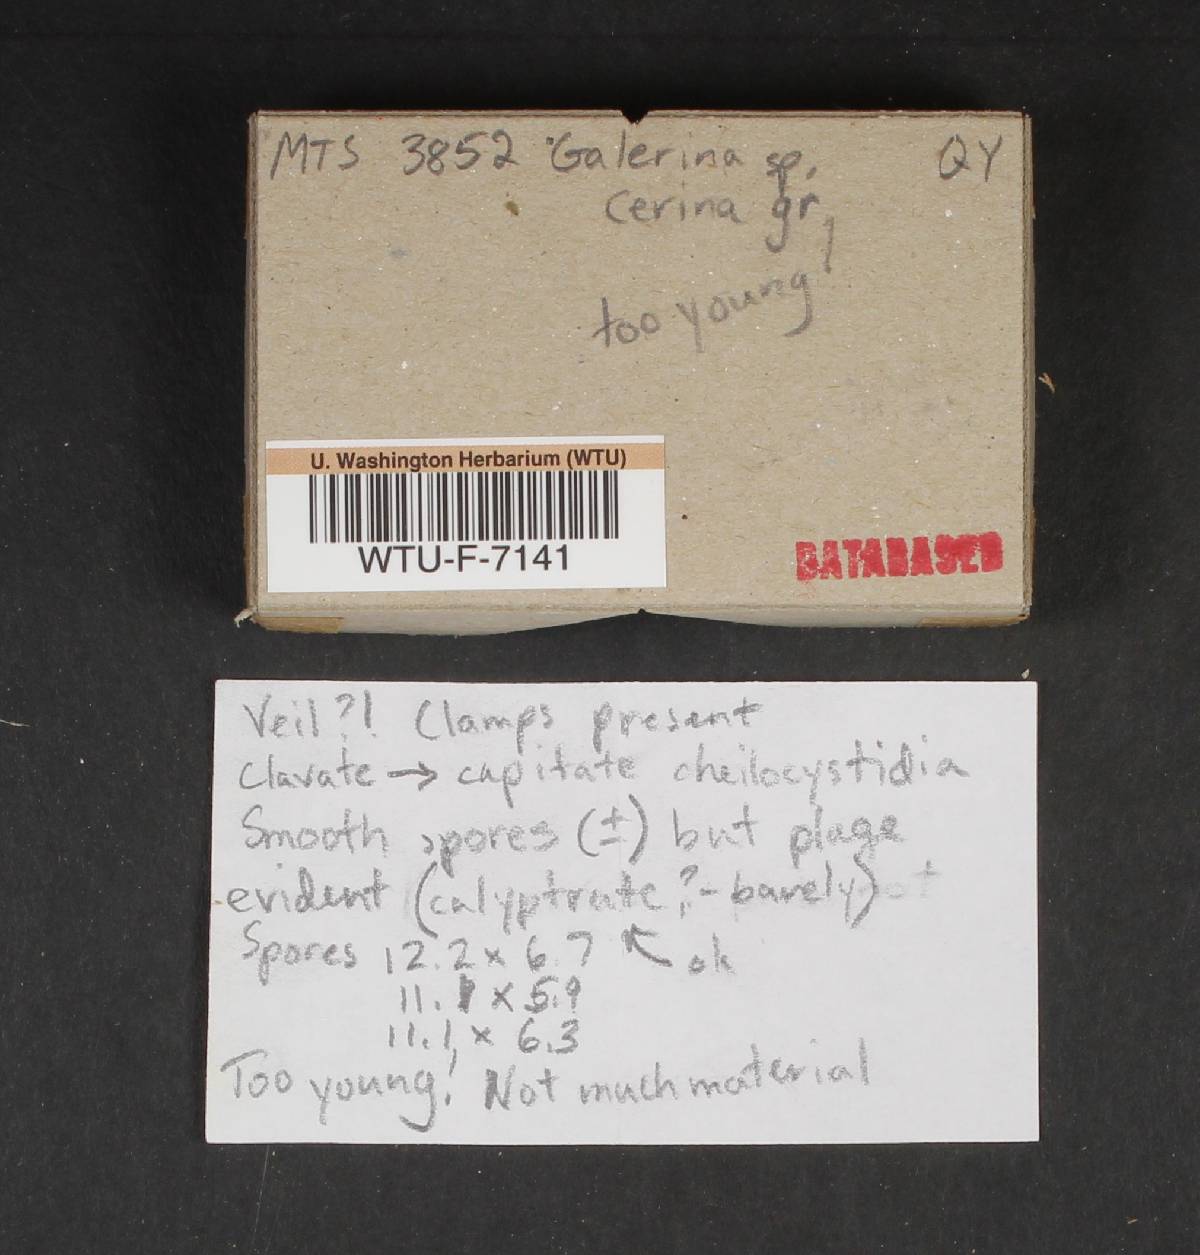 MTS 3852 Galerina sp. QY
cerina gr.
too young!
U. Washington Herbarium (WTU)
WTU-F-7141
DATABASED
Veil?! Clamps present
clavate → capitate cheilocystidia
Smooth spores (±) but plage
evident (calyptrate?- barely)
Spores 12.2 x 6.7 ↖ ok
11.1 x 5.9
11.1 x 6.3
Too young! Not much material